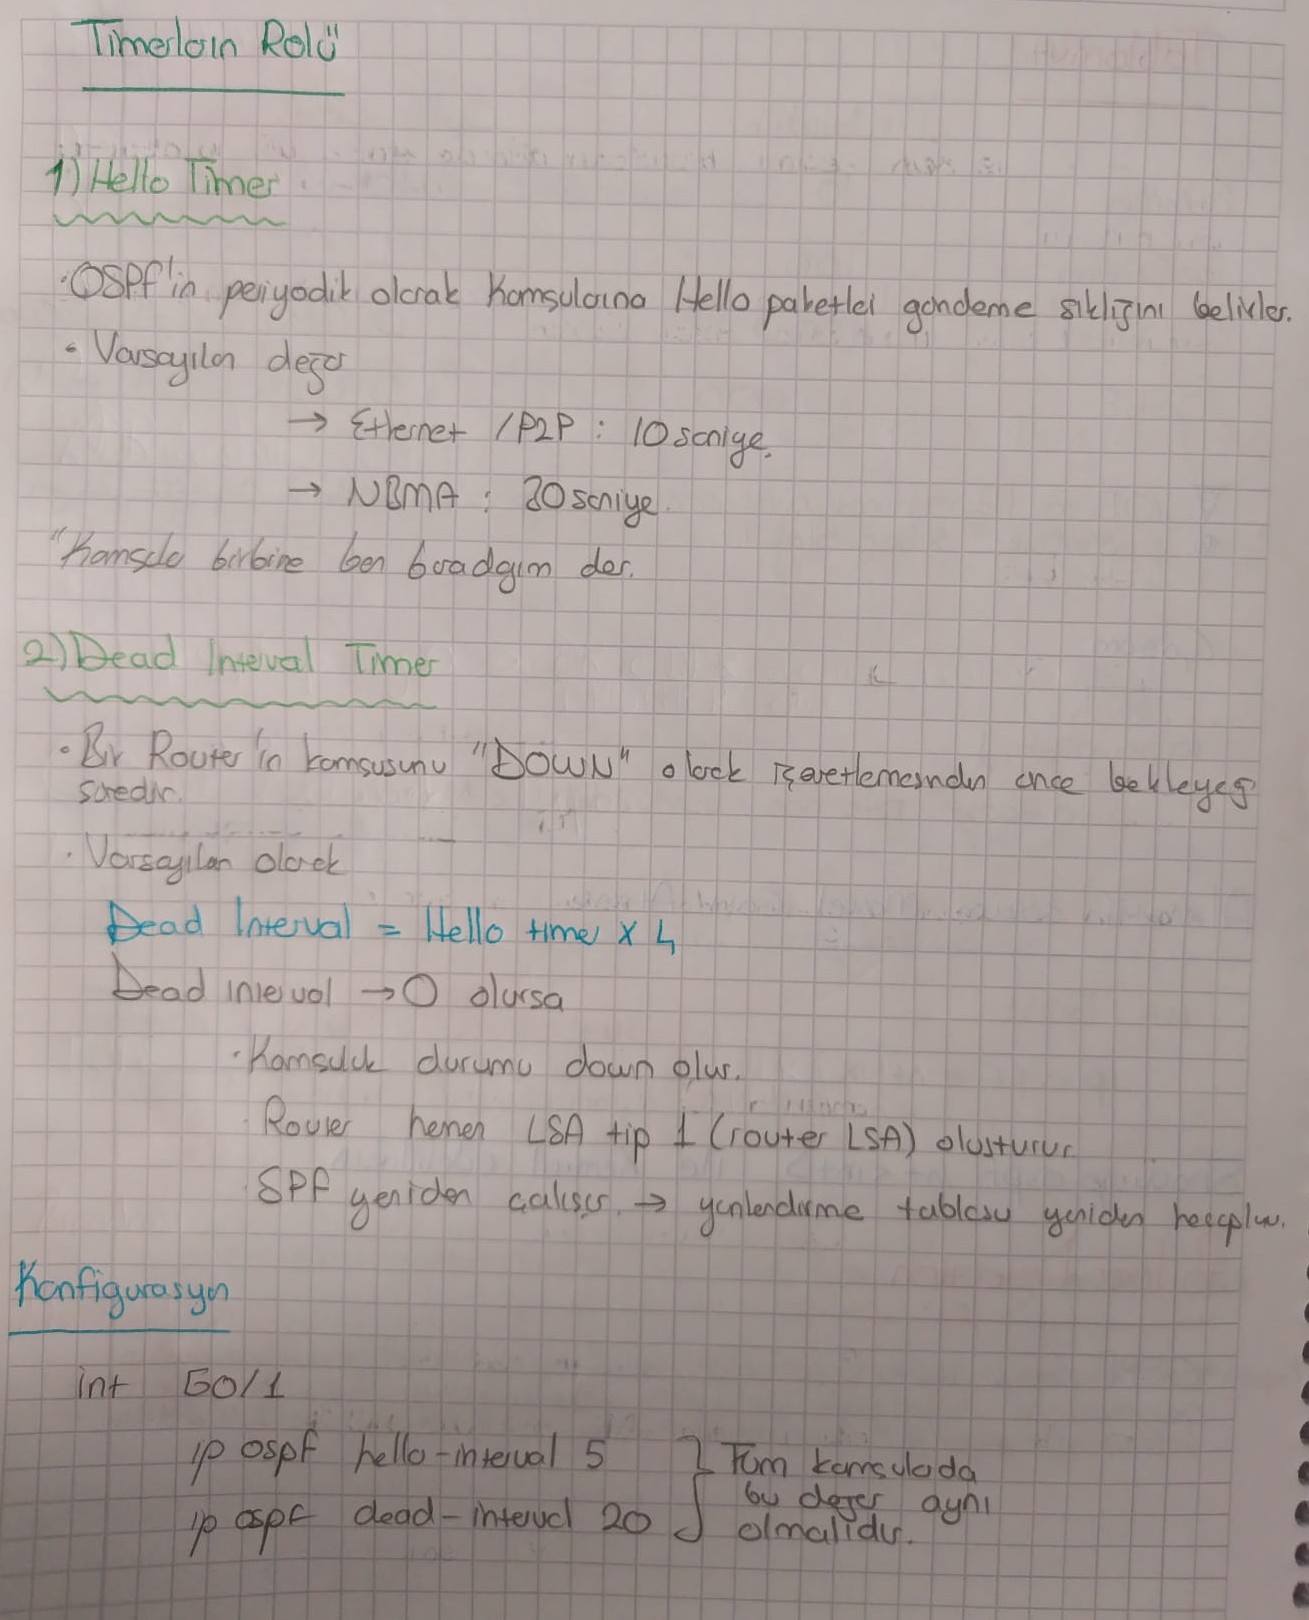 Timerların Rolü
1) Hello Timer
• OSPF'in periyodik olarak Komşularına Hello paketleri gönderme sıklığını belirler.
• Varsayılan değer
→ Ethernet / P2P : 10 saniye.
→ NBMA : 30 saniye.
"Komşula birbirine ben buradayım der.
2) Dead Interval Timer
• Bir Router'in komşusunu "DOWN" olarak işaretlemesinden önce bekleyeceği
süredir.
• Varsayılan olarak
Dead Interval = Hello timer x 4
Dead interval → 0 olursa
• Komşuluk durumu down olur.
Router hemen LSA tip 1 (router LSA) oluşturur
SPF yeniden çalışır. → yönlendirme tablosu yeniden hesaplanır.
Konfigurasyon
int G0/1
ip ospf hello-interval 5 } Tüm komşularda
bu değer aynı
ip ospf dead-interval 20 olmalıdır.